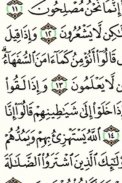 إِنَّمَا نَحْنُ مُصْلِحُونَ ١١
لَٰكِن لَّا يَشْعُرُونَ ١٢ وَإِذَا قِيلَ
قَالُوٓا۟ أَنُؤْمِنُ كَمَآ ءَامَنَ ٱلسُّفَهَآءُ
لَّا يَعْلَمُونَ ١٣ وَإِذَا لَقُوا۟
إِذَا خَلَوْا۟ إِلَىٰ شَيَٰطِينِهِمْ قَالُوٓا۟ إِنَّا
١٤ ٱللَّهُ يَسْتَهْزِئُ بِهِمْ وَيَمُدُّهُمْ
ٱلَّذِينَ ٱشْتَرَوُا۟ ٱلضَّلَٰلَةَ